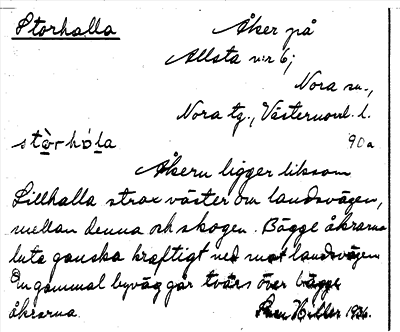 Storhalla
Åker på
Allsta n:r 6;
Nora sn.,
Nora tg., Västernorrl. l.
90a
Åkern ligger liksom
Lillhalla strax väster om landsvägen,
mellan denna och skogen. Bägge åkrarna
luta ganska kraftigt ned mot landsvägen
En gammal byväg går tvärs över bägge
åkrarna. 1936.